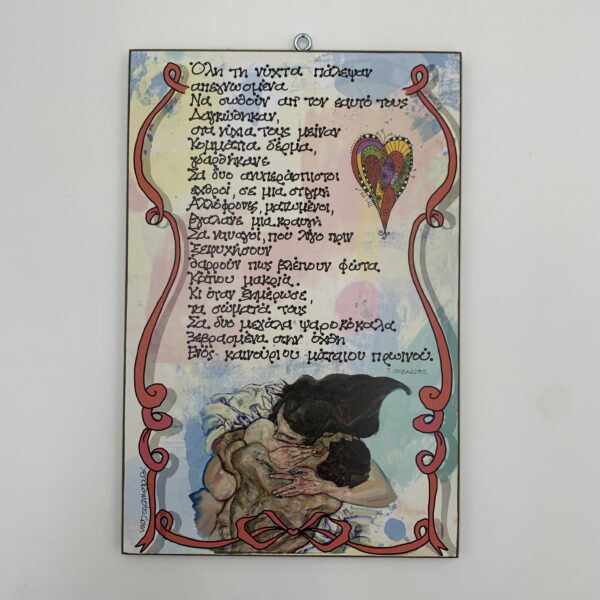 Όλη τη νύχτα πάλεψαν
απεγνωσμένα
Να σωθούν απ' τον εαυτό τους
Δαγκώθηκαν,
στα νύχια τους μείναν
Κομμάτια δέρμα,
γδαρθήκανε
Σα δυο ανυπεράσπιστοι
εχθροί, σε μια στιγμή
Αλλόφρονες, ματωμένοι,
βγάλανε μια κραυγή
Σα ναυαγοί, που λίγο πριν
ξεψυχήσουν
θαρρούν πως βλέπουν φώτα
Κάπου μακριά..
Κι όταν ξημέρωσε,
τα σώματά τους
Σα δυο μεγάλα ψαροκόκαλα
Ξεβρασμένα στην όχθη
Ενός καινούριου μάταιου πρωινού.